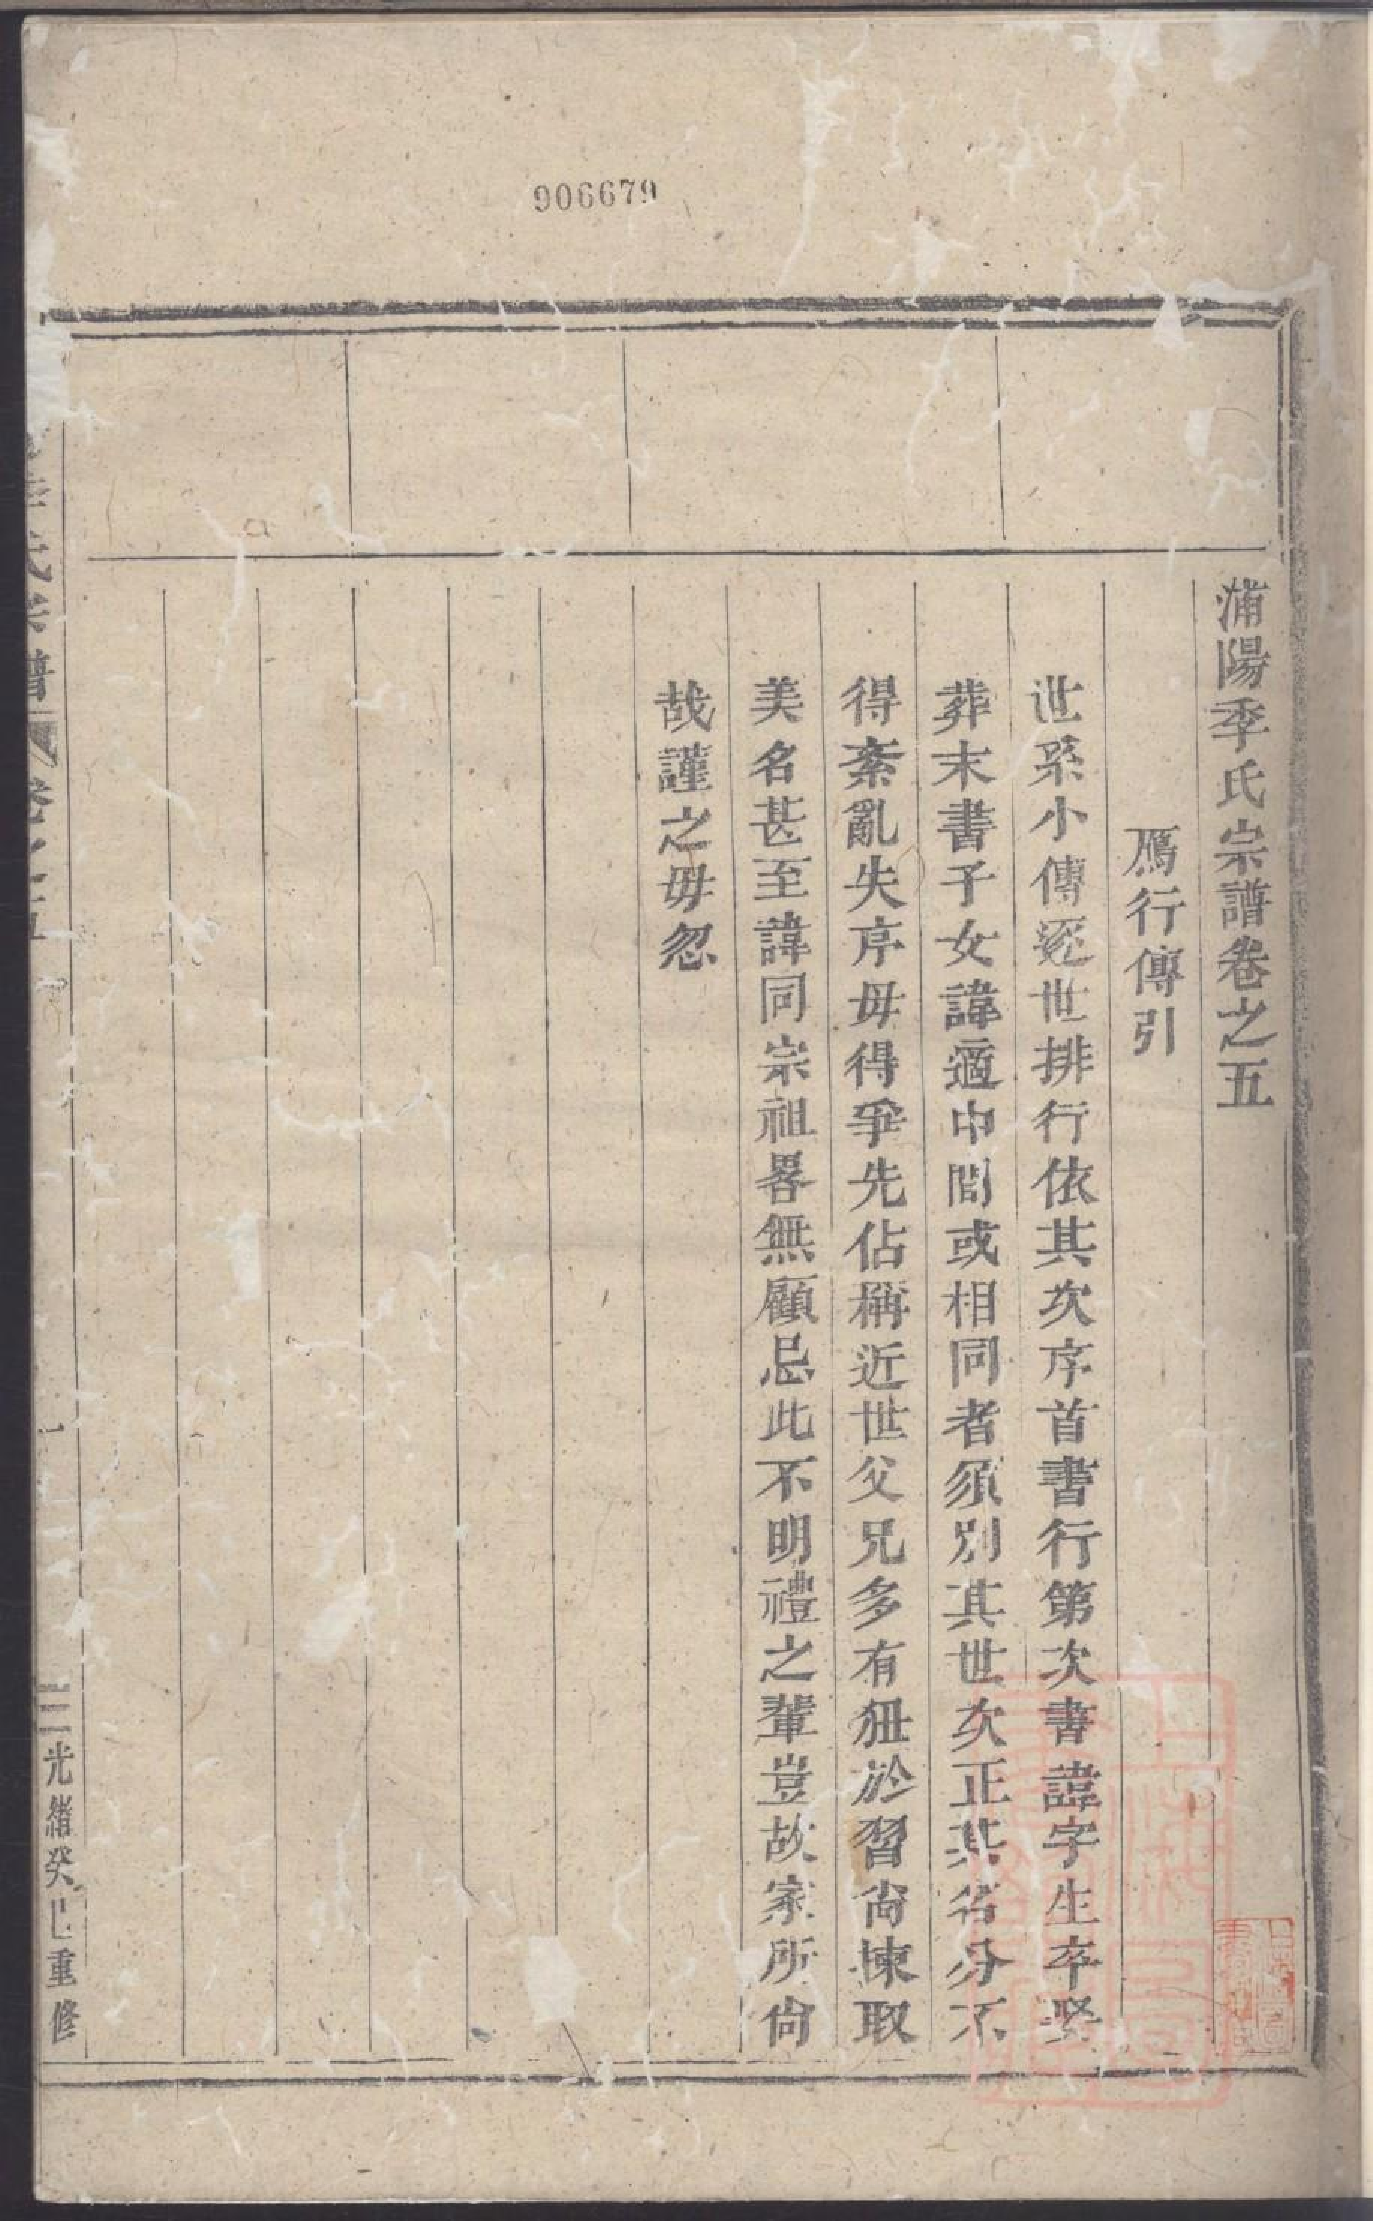 906679
蒲陽季氏宗譜卷之五
鴈行傳引
世系小傳逐世排行依其次序首書行第次書諱字生卒娶
葬末書子女諱適中間或相同者須別其世次正其名分不
得紊亂失序毋得爭先佔稱近世父兄多有狃於習尚揀取
美名甚至諱同宗祖畧無顧忌此不明禮之輩豈故家所尚
哉謹之毋忽
季氏宗譜 卷之五
一
光緒癸巳重修